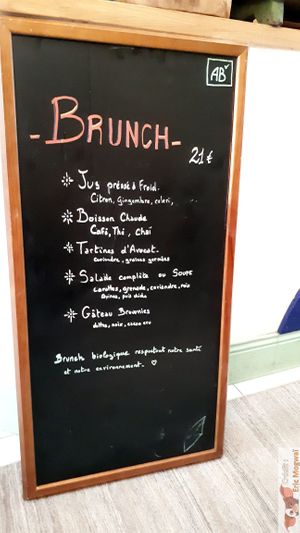 AB
- BRUNCH -
21€
Jus pressé à Froid.
Citron, Gingembre, celeri,
Boisson Chaude
Café, Thé, Chaï
Tartines d'Avocat.
coriandre, graines germées
Salade complète ou SOUPE
carottes, grenade, coriandre, noix
Quinoa, pois chiche
Gâteau Brownies
noix, cacao cru
Brunch biologique respectant notre santé
et notre environnement. ♡
Eric Mogwai